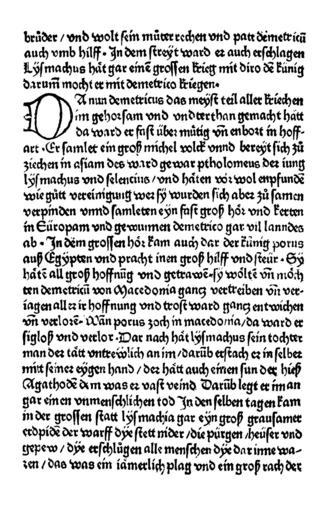 brüder / vnd wolt sein müter rechen vnd patt demetricū
auch vmb hilff · In dem streyt ward er auch erschlagen
Lysmachus hāt gar einē grossen krieg mit diro dē künig
darum̄ mocht er mit demetrico kriegen ·
DA nun demetricus das meyst teil aller kriechen
im gehorsam vnd vndterthan gemacht hātt
da ward er fast über mūtig vn̄ enbort in hoff-
art · Er samlet ein groß michel volck vnnd bereyt sich zů
ziechen in asiam des ward gewar ptholomeus der iung
lysmachus vnd selencius / vnd hāten vor wol enpfundē
wie gůtt vereinigung wer sy wurden sich aber zů samen
verpinden vnnd samleten eyn fast groß hör vnd kerten
in Europam vnd gewunnen demetrico gar vil lanndes
ab · In dem grossen hör kam auch dar der künig porus
auß Egypten vnd pracht inen groß hilff vnd steur · Sy
hātē all groß hoffnūg vnd getrawē · sy wöltē vn̄ möch
ten demetricū von Macedonia gancz vertreiben vn̄ ver-
iagen aller ir hoffnung vnd trost ward gancz entwichen
vn̄ verlorē · Wān porus zoch in macedonia / da ward er
sigloß vnd verlor · Dar nach hāt lysmachus sein tochter
man der tātt vntrewlich an im / darūb erstach er in selber
mit seiner eygen hand / der hātt auch einen sun der hieß
Agathodē dem was er vast veind Darūb legt er im an
gar einen vnmenschlichen tod In den selben tagen kam
in der grossen statt lysmachia gar eyn groß grausamer
erdpidē der warff dye stett nider / die pürgen / heüser vnd
gepew / dye erschlügen alle menschen dye dar inne wa-
ren / das was ein iämerlich plag vnd ein groß rach der